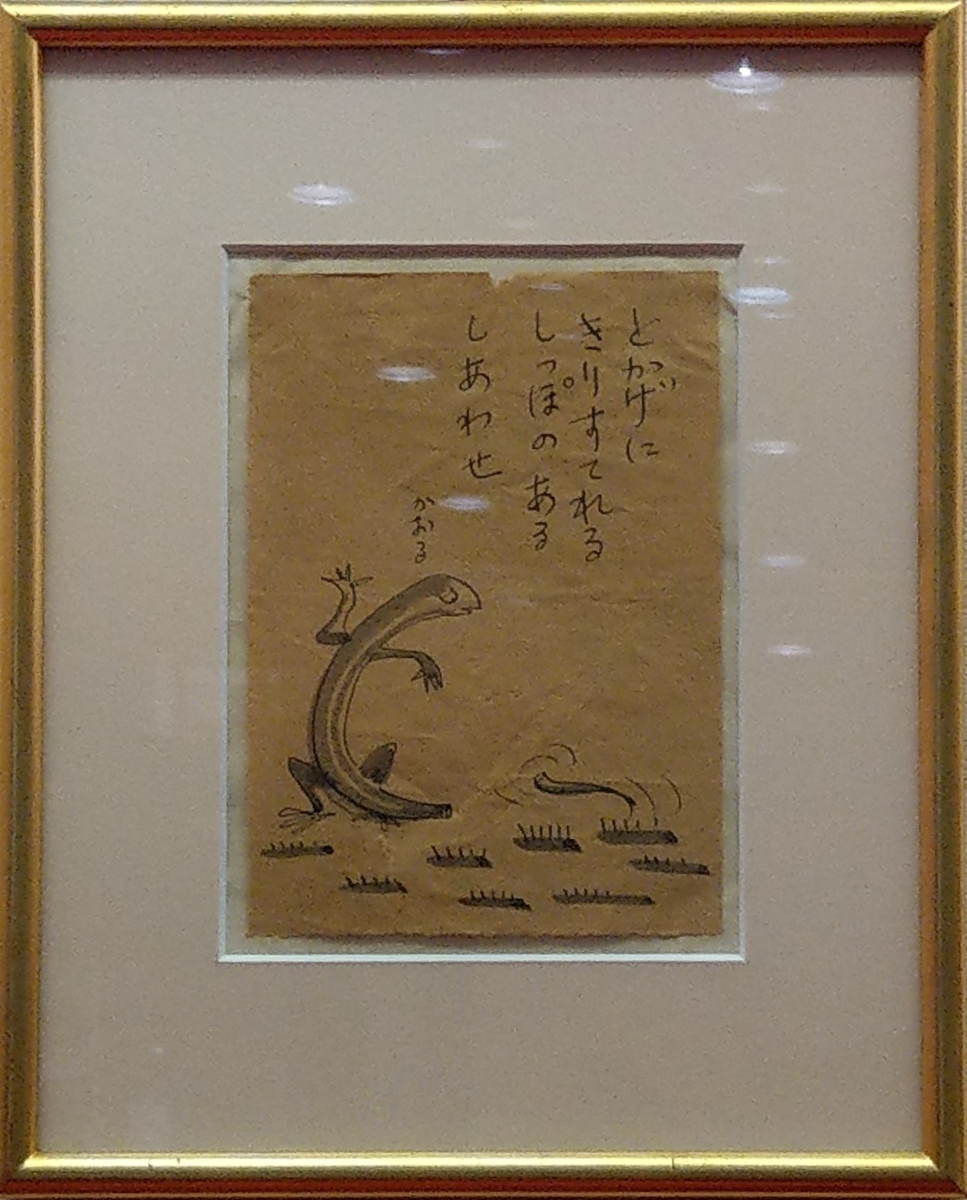 とかげに
きりすてれる
しっぽのある
しあわせ
かおる